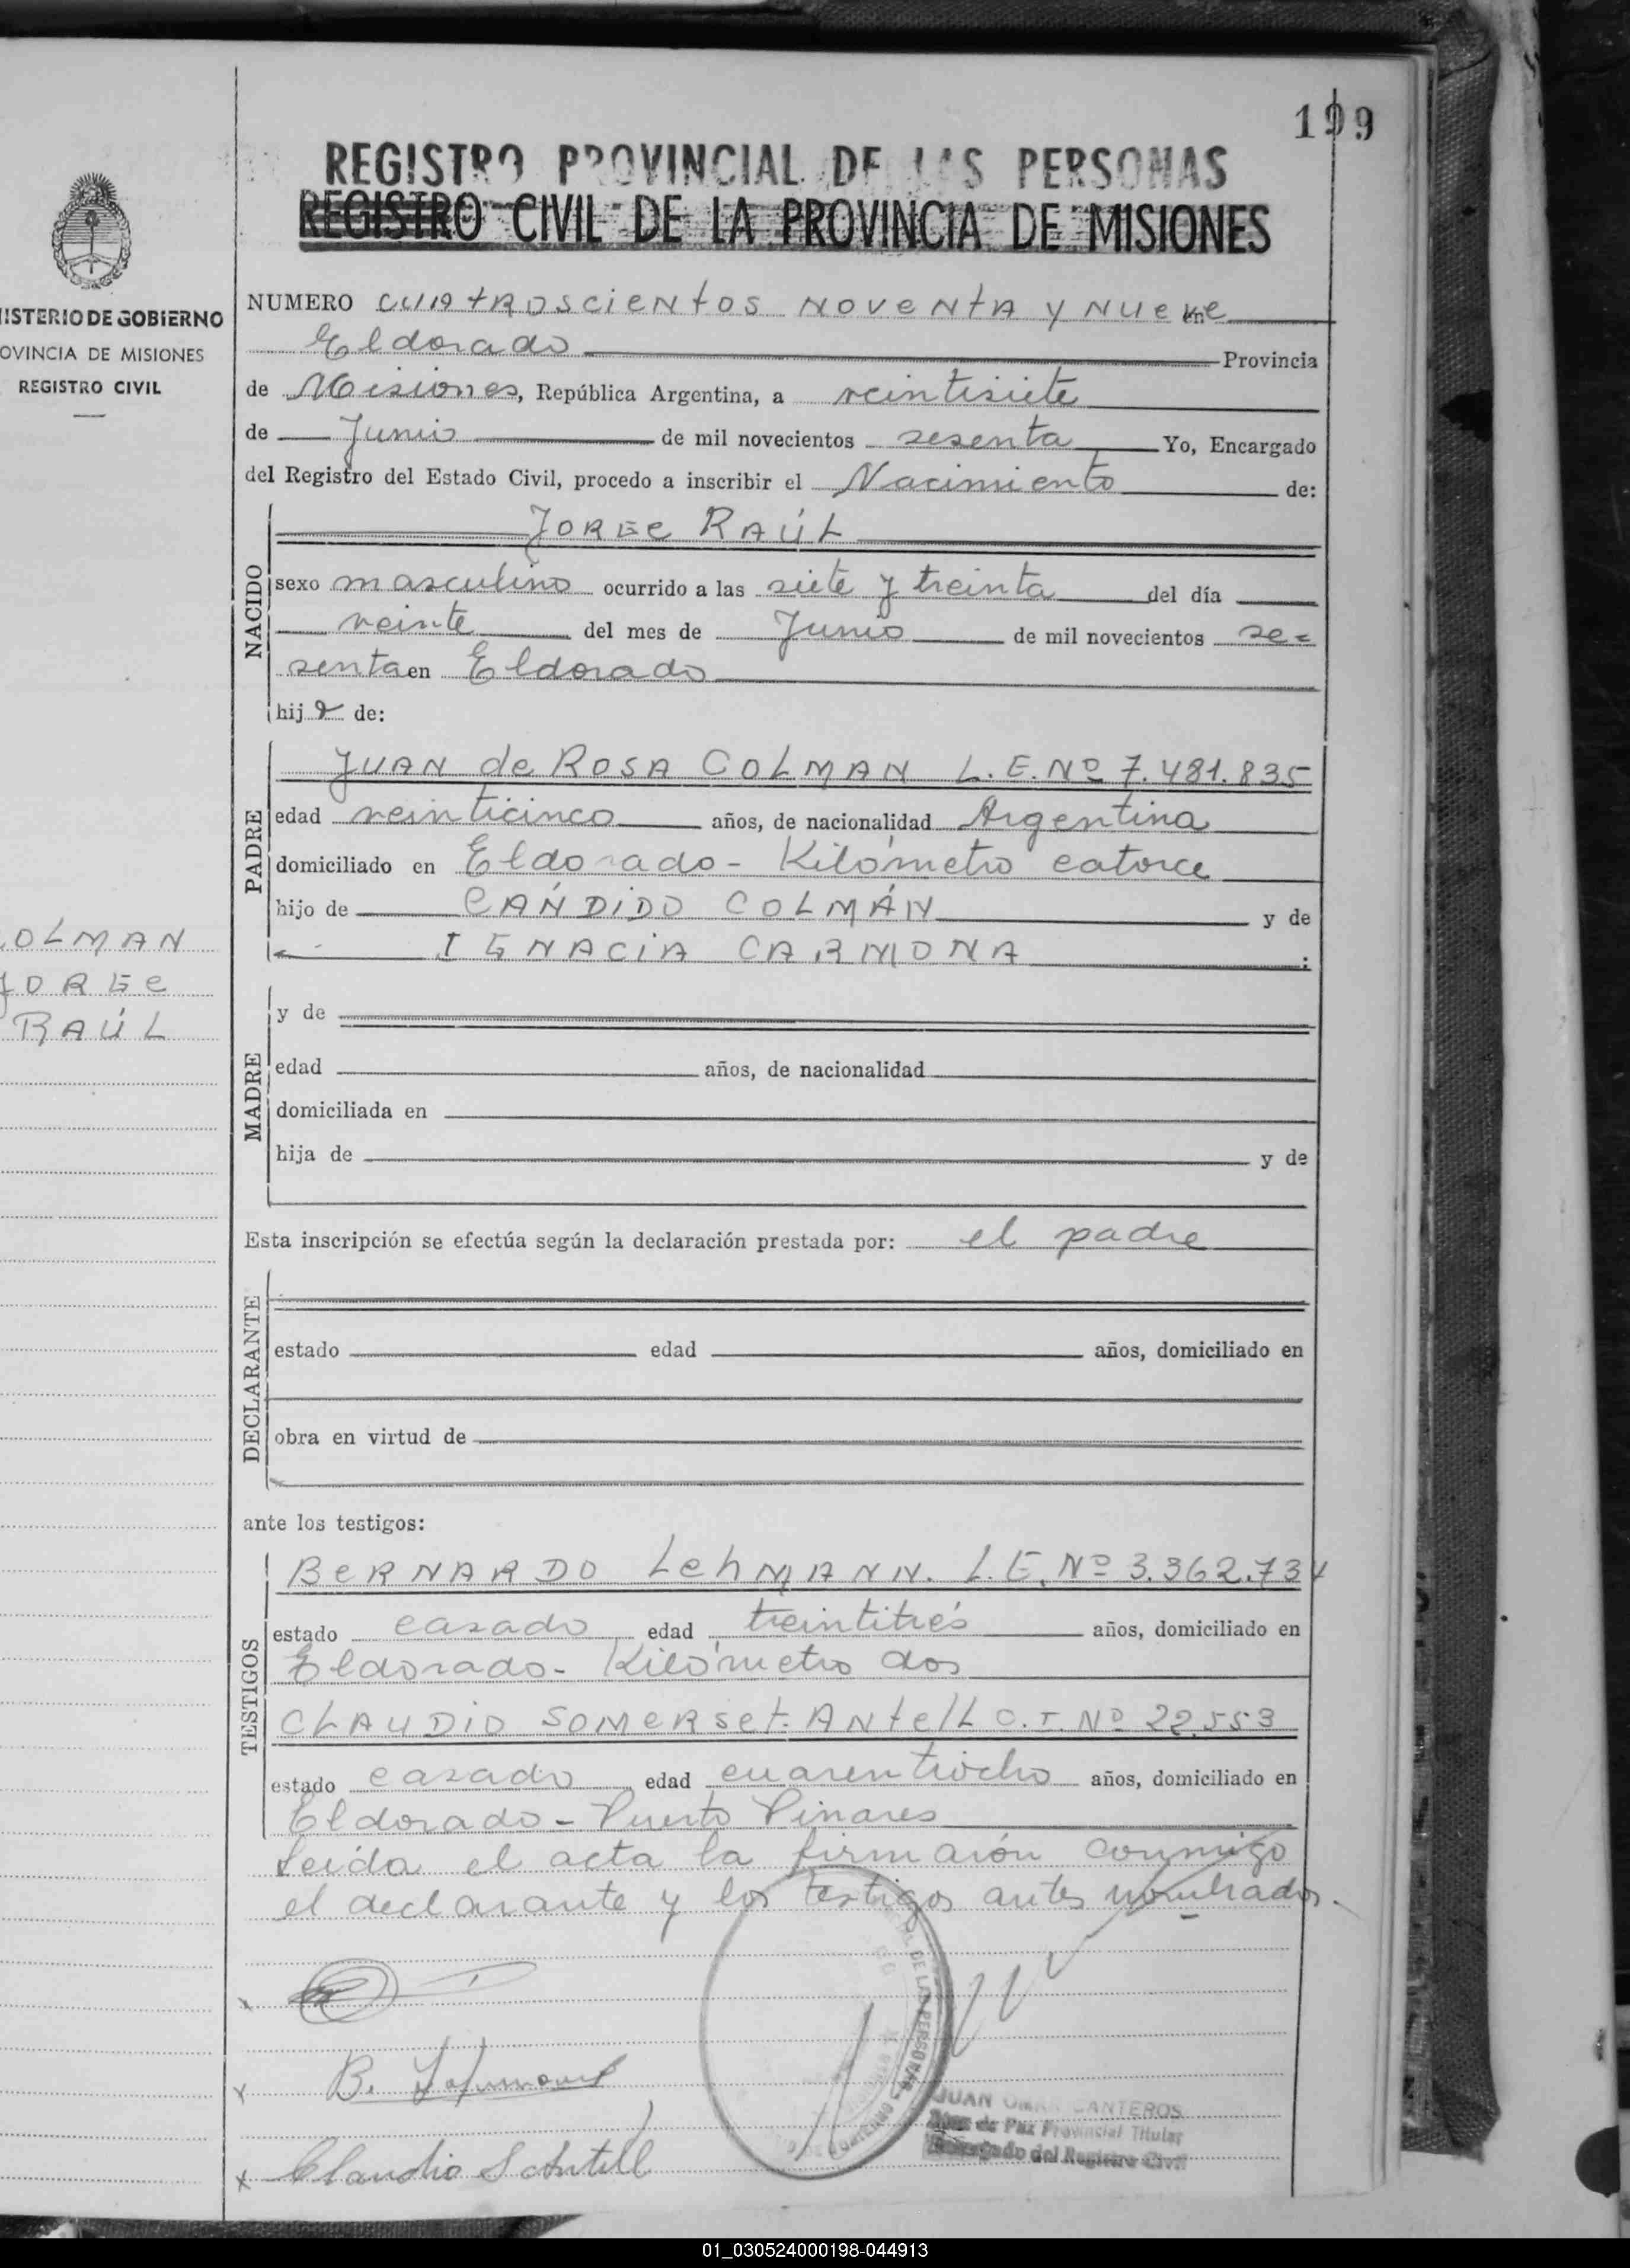 199
REGISTRO PROVINCIAL DE LAS PERSONAS
REGISTRO CIVIL DE LA PROVINCIA DE MISIONES
NISTERIO DE GOBIERNO
OVINCIA DE MISIONES
REGISTRO CIVIL
OLMAN
JORGE
RAÚL
NUMERO CUATROSCIENTOS NOVENTA Y NUEVE en
Eldorado Provincia
de Misiones, República Argentina, a veintisiete
de Junio de mil novecientos sesenta Yo, Encargado
del Registro del Estado Civil, procedo a inscribir el Nacimiento de:
NACIDO
JORGE RAÚL
sexo masculino ocurrido a las siete y treinta del día
veinte del mes de Junio de mil novecientos se=
senta en Eldorado
hijo de:
PADRE
JUAN de ROSA COLMAN L.E. Nº 7.481.835
edad veinticinco años, de nacionalidad Argentina
domiciliado en Eldorado - Kilómetro catorce
hijo de CÁNDIDO COLMÁN y de
IGNACIA CARMONA :
MADRE
y de
edad años, de nacionalidad
domiciliada en
hija de y de
Esta inscripción se efectúa según la declaración prestada por: el padre
DECLARANTE
estado edad años, domiciliado en
obra en virtud de
ante los testigos:
TESTIGOS
BERNARDO LEHMANN. L.E. Nº 3.362.734
estado casado edad treintitrés años, domiciliado en
Eldorado - Kilómetro dos
CLAUDIO SOMERSET ANTELL C.I. Nº 22.553
estado casado edad cuarentiocho años, domiciliado en
Eldorado - Puerto Pinares
Leída el acta la firmarón conmigo
el declarante y los testigos antes nombrados.
DE LAS PERSONAS
B. Lehmann
Claudio S Antell
JUAN OMAR CANTEROS
Juez de Paz Provincial Titular
Encargado del Registro Civil
01_030524000198-044913